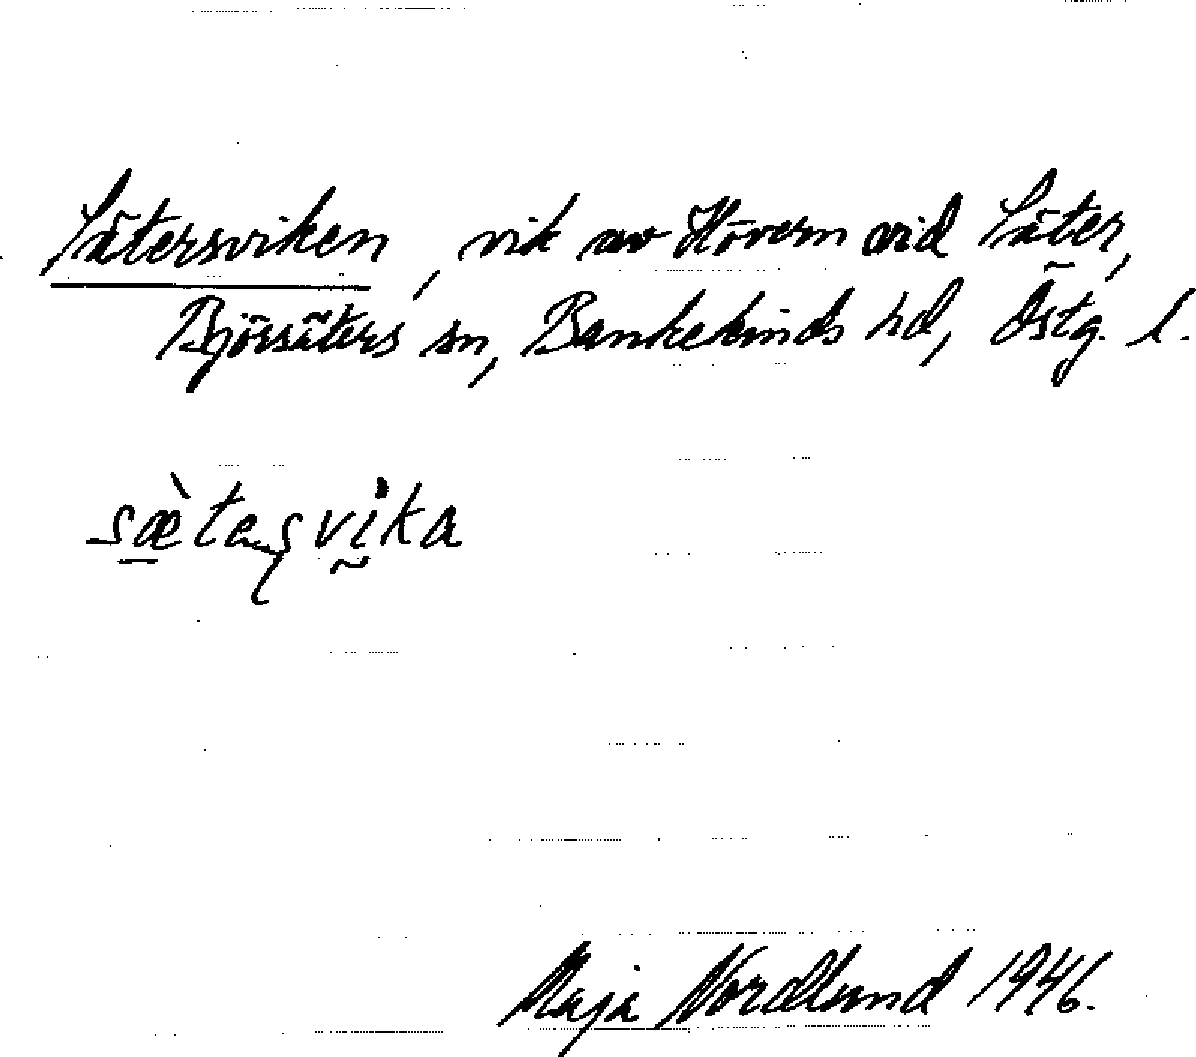 Sätersviken, vik av Hövern vid Säter,
Björsäters sn, Bankekinds hd, Östg. l.
sæ̀teʂvika
Maja Nordlund 1946.